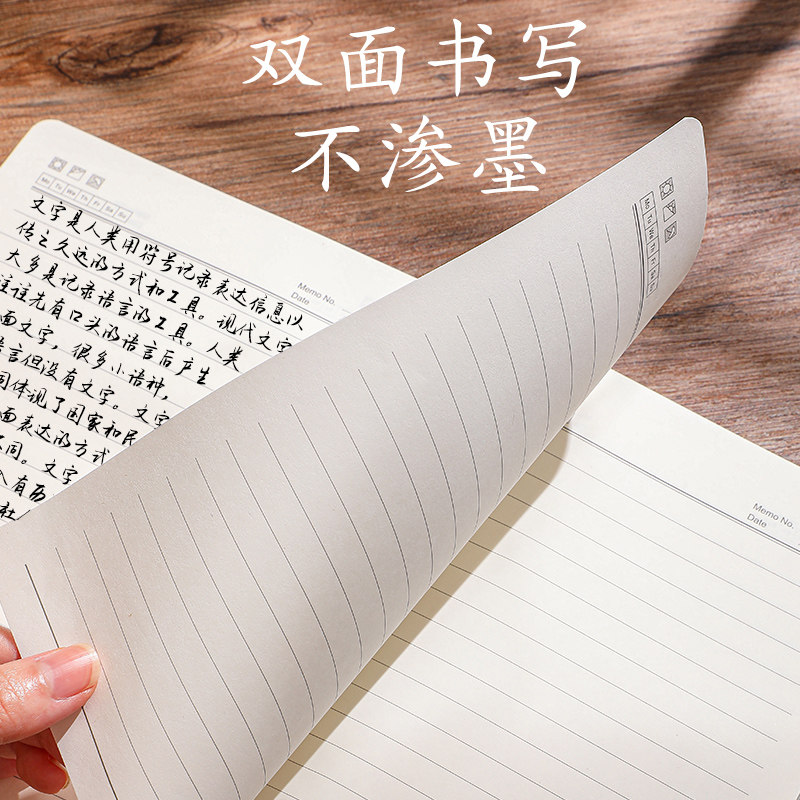 双面书写
不渗墨
Mo Tu We Th Fr Sa Su
Memo No.
Date
文字是人类用符号记录表达信息以
传之久远的方式和工具。现代文字
大多是记录语言的工具。人类
往往先有口头的语言后产生
面文字,很多小语种,
语言但没有文字。文字
同体现了国家和民
面表达的方式
不同。文字
有历
社
Mo Tu We Th Fr Sa Su
Memo No.
Date